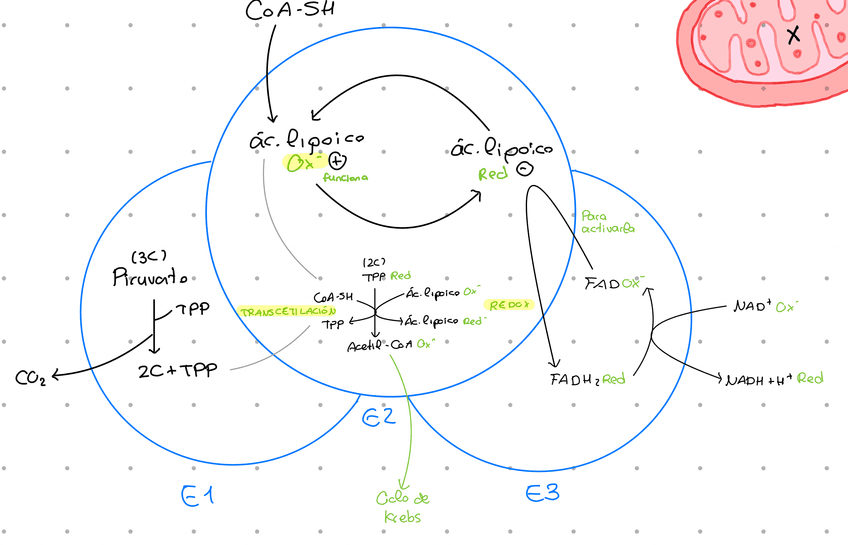 CoA-SH
X
ác. lipoico
Ox⁻ +
funciona
ác. lipoico
Red -
Para
activarla
(3C)
Piruvato
TPP
CO₂
2C + TPP
(2C)
TPP Red
CoA-SH
Ác. lipoico Ox⁻
TRANSCETILACIÓN
REDOX
TPP
Ác. lipoico Red⁻
Acetil-CoA Ox⁻
FAD Ox⁻
NAD⁺ Ox⁻
FADH₂ Red
NADH + H⁺ Red
E2
E1
E3
Ciclo de
Krebs